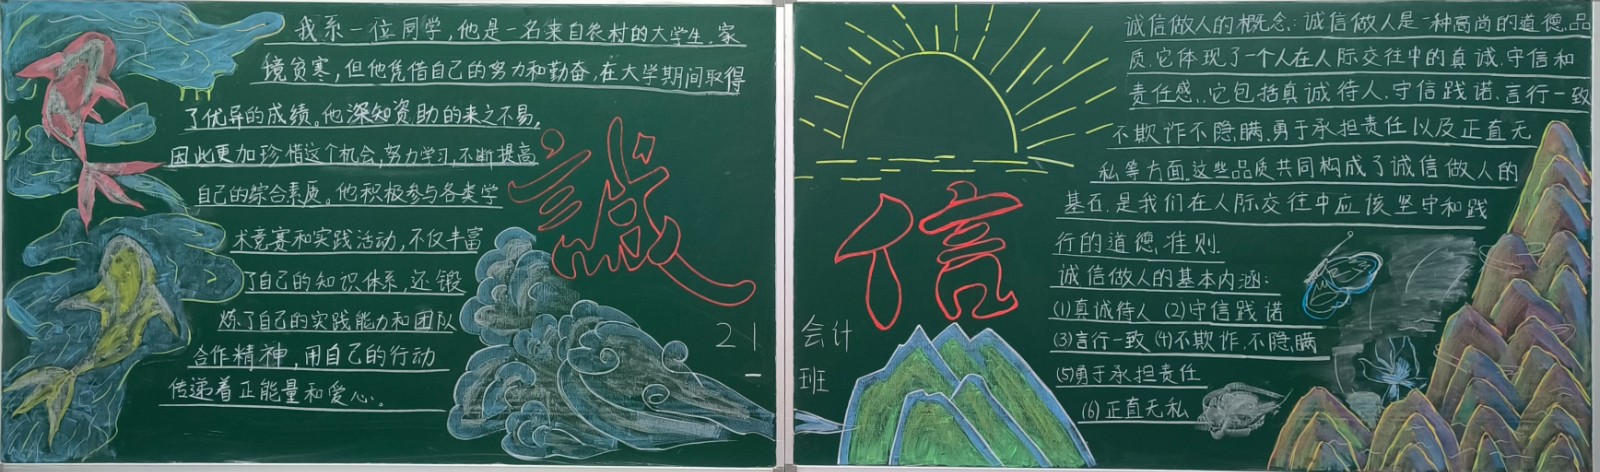 我系一位同学,他是一名来自农村的大学生.家
境贫寒,但他凭借自己的努力和勤奋,在大学期间取得
了优异的成绩。他深知资助的来之不易,
因此更加珍惜这个机会,努力学习,不断提高
自己的综合素质。他积极参与各类学
术竞赛和实践活动,不仅丰富
了自己的知识体系,还锻
炼了自己的实践能力和团队
合作精神,用自己的行动
传递着正能量和爱心。
誠
21
信
会计
班
诚信做人的概念:诚信做人是一种高尚的道德品
质.它体现了一个人在人际交往中的真诚.守信和
责任感.它包括真诚待人.守信践诺.言行一致
不欺诈不隐瞒.勇于承担责任以及正直无
私等方面.这些品质共同构成了诚信做人的
基石.是我们在人际交往中应该坚守和践
行的道德准则
诚信做人的基本内涵:
(1)真诚待人 (2)守信践诺
(3)言行一致 (4)不欺诈.不隐瞒
(5)勇于承担责任
(6)正直无私